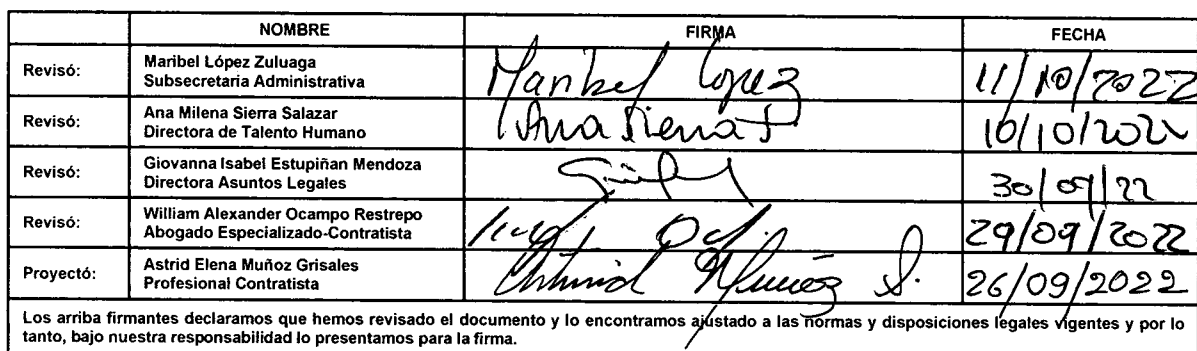 NOMBRE FIRMA FECHA
Revisó: Maribel López Zuluaga
Subsecretaria Administrativa
Maribel Lopez 11/10/2022
Revisó: Ana Milena Sierra Salazar
Directora de Talento Humano
Ana Sierra S. 10/10/2022
Revisó: Giovanna Isabel Estupiñan Mendoza
Directora Asuntos Legales
30/09/22
Revisó: William Alexander Ocampo Restrepo
Abogado Especializado-Contratista
29/09/2022
Proyectó: Astrid Elena Muñoz Grisales
Profesional Contratista
Astrid Muñoz G. 26/09/2022
Los arriba firmantes declaramos que hemos revisado el documento y lo encontramos ajustado a las normas y disposiciones legales vigentes y por lo
tanto, bajo nuestra responsabilidad lo presentamos para la firma.